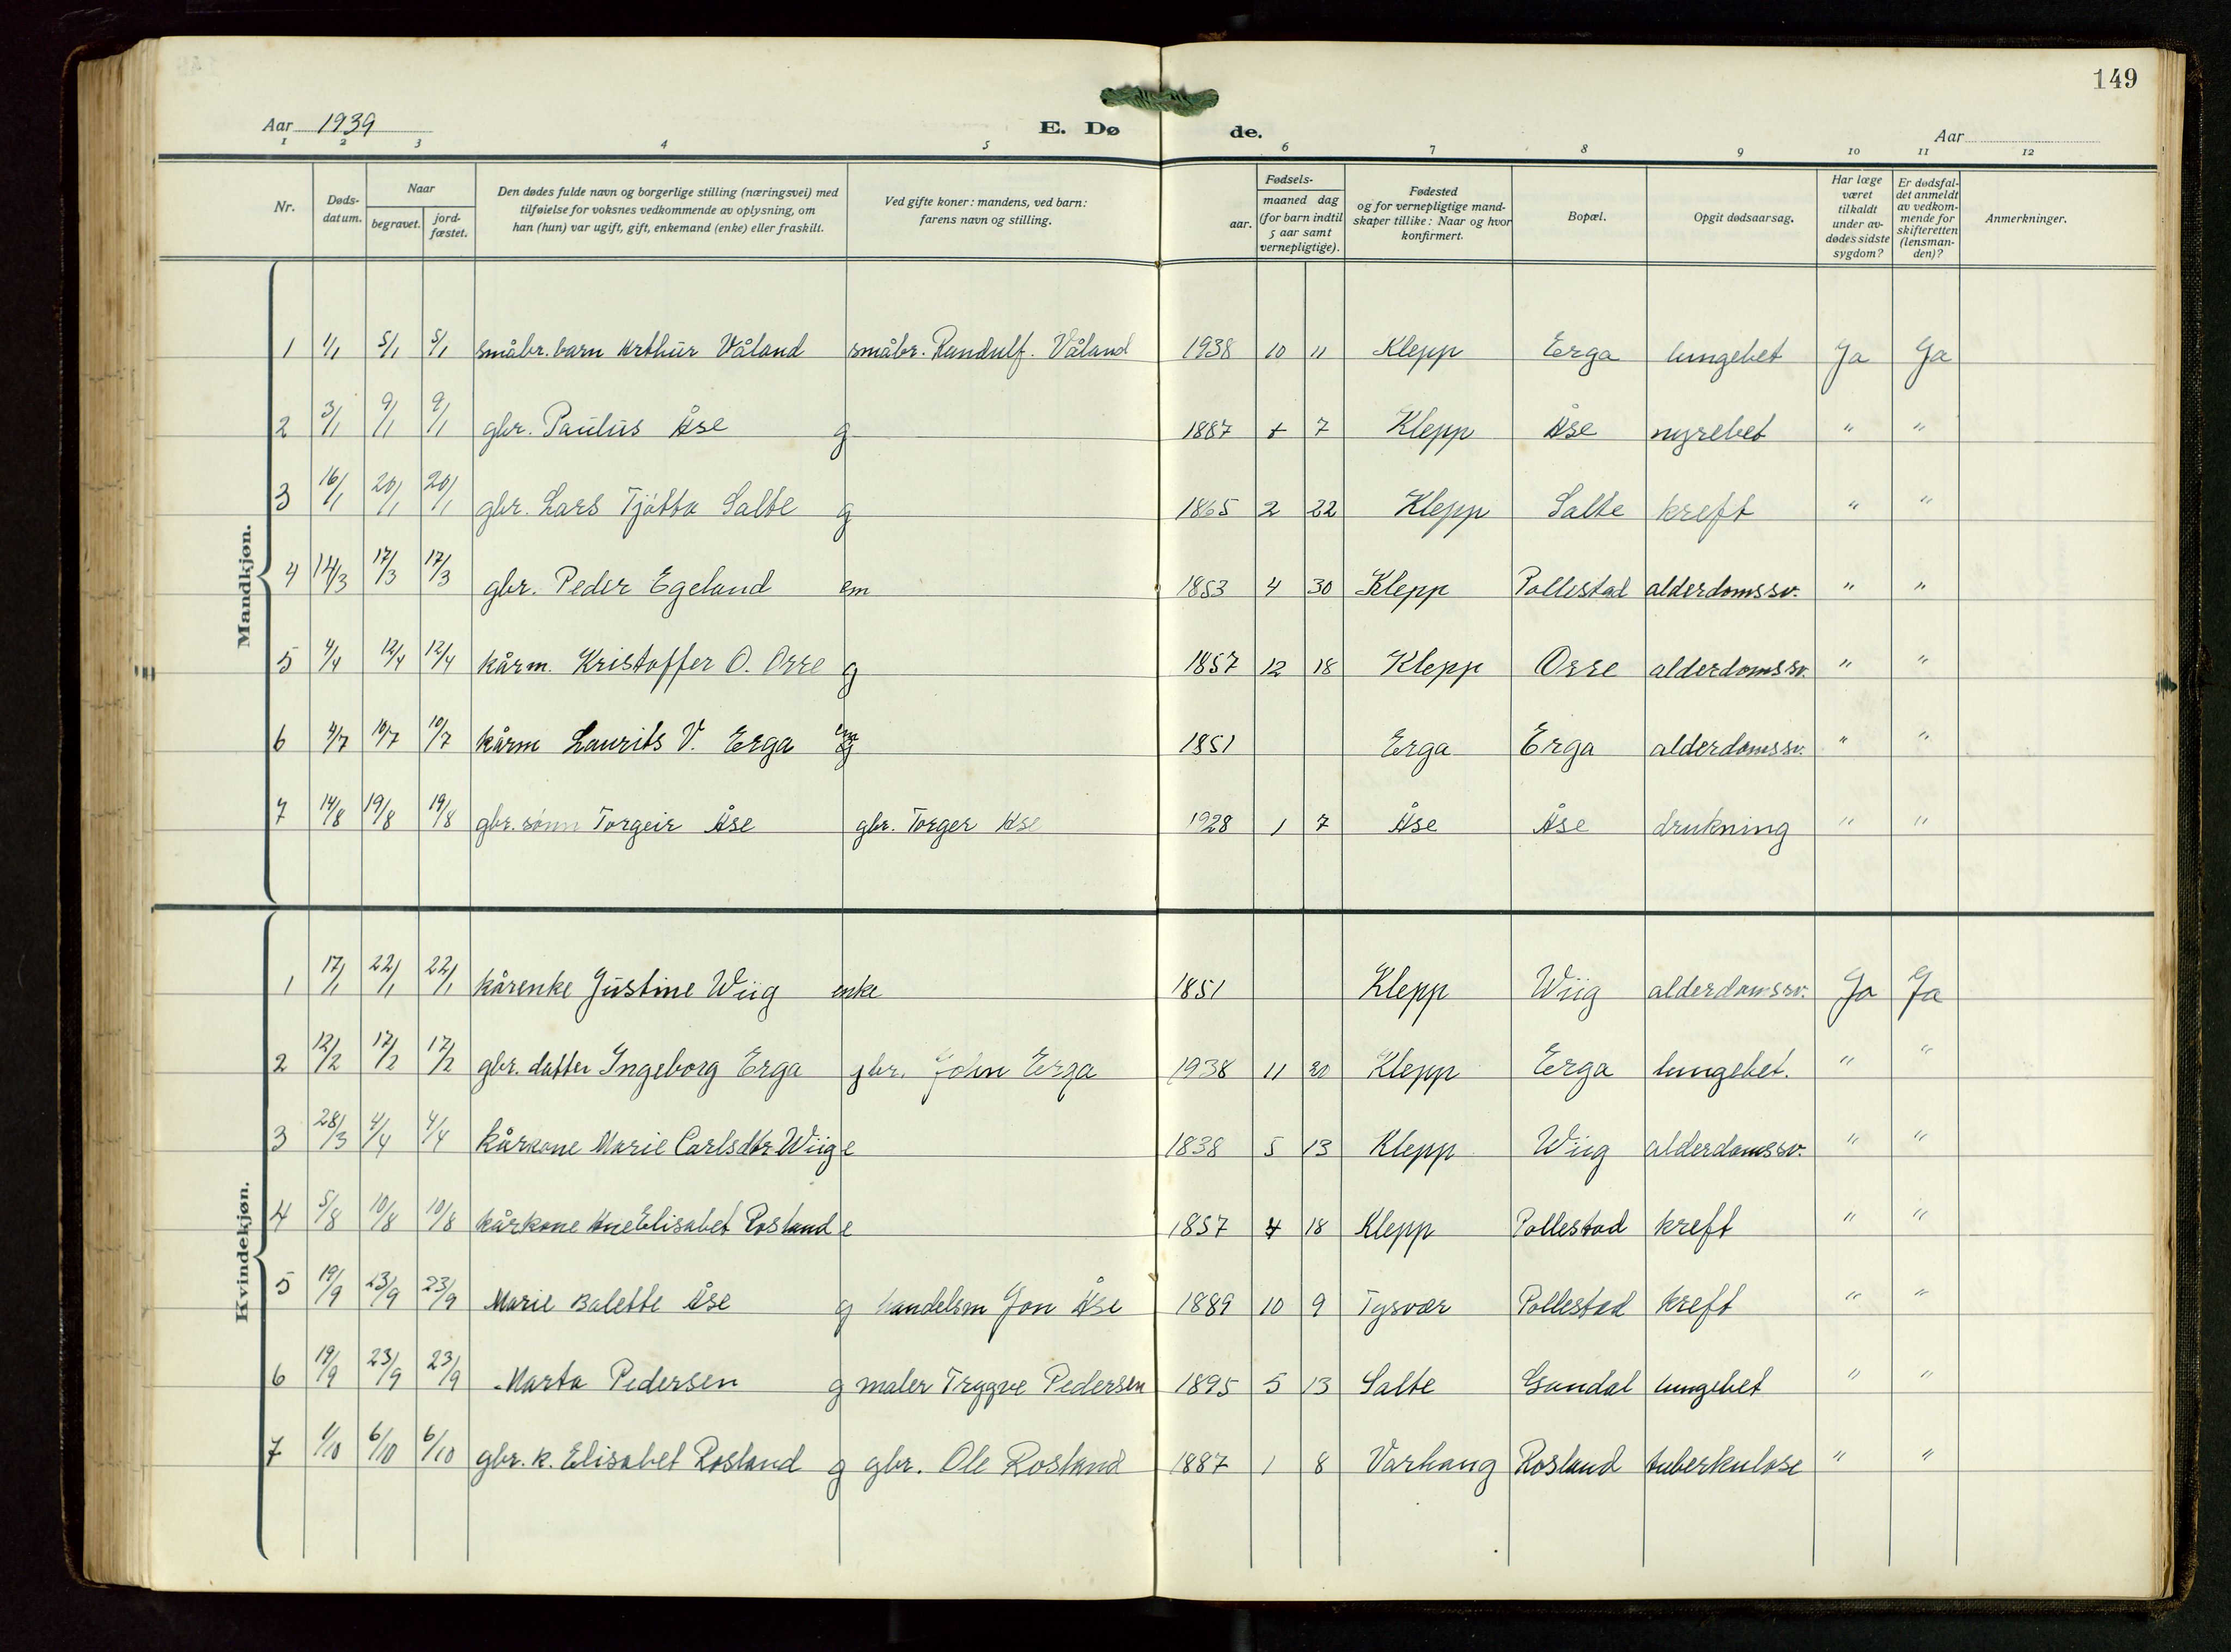 149
Aar 1939
E. Dø
de.
Aar
1 2 3 4 5 6 7 8 9 10 11 12
Nr.
Døds-
datum.
Naar
begravet.
jord-
fæstet.
Den dødes fulde navn og borgerlige stilling (næringsvei) med
tilføielse for voksnes vedkommende av oplysning, om
han (hun) var ugift, gift, enkemand (enke) eller fraskilt.
Ved gifte koner: mandens, ved barn:
farens navn og stilling.
Fødsels-
aar.
maaned dag
(for barn indtil
5 aar samt
vernepligtige).
Fødested
og for vernepligtige mand-
skaper tillike: Naar og hvor
konfirmert.
Bopæl.
Opgit dødsaarsag.
Har læge
været
tilkaldt
under av-
dødes sidste
sygdom?
Er dødsfal-
det anmeldt
av vedkom-
mende for
skifteretten
(lensman-
den)?
Anmerkninger.
Mandkjøn.
1 1/1 5/1 5/1 småbr. barn Arthur Våland småbr. Randulf. Våland 1938 10 11 Klepp Erga lungebet Ja Ja
2 3/1 9/1 9/1 gbr. Paulus Åse g 1887 7 Klepp Åse nyrebet " "
3 16/1 20/1 20/1 gbr. Lars Tjøtta Salte g 1865 2 22 Klepp Salte kreft " "
4 14/3 17/3 17/3 gbr. Peder Egeland em 1853 4 30 Klepp Pollestad alderdomssv. " "
5 4/4 12/4 12/4 kårm. Kristoffer O. Orre g 1857 12 18 Klepp Orre alderdomssv. " "
6 4/7 10/7 10/7 kårm Laurits V. Erga em 1851 Erga Erga alderdomssv. " "
7 14/8 19/8 19/8 gbr. sønn Torgeir Åse gbr. Torger Åse 1928 1 7 Åse Åse drukning " "
Kvindekjøn.
1 17/1 22/1 22/1 kårenke Justine Wiig enke 1851 Klepp Wiig alderdomssv. Ja Ja
2 12/2 17/2 17/2 gbr. datter Ingeborg Erga gbr. John Erga 1938 11 20 Klepp Erga lungebet. " "
3 28/3 4/4 4/4 kårkone Marie Carlsdtr. Wiig e 1838 5 13 Klepp Wiig alderdomssv. " "
4 5/8 10/8 10/8 kårkone Ane Elisabet Rosland e 1857 4 18 Klepp Pollestad kreft " "
5 19/9 23/9 23/9 Marie Balette Åse g handelsm Jon Åse 1889 10 9 Tysvær Pollestad kreft " "
6 19/9 23/9 23/9 Marta Pedersen g maler Trygve Pedersen 1895 5 13 Salte Gandal lungebet " "
7 1/10 6/10 6/10 gbr. k. Elisabet Rosland g gbr. Ole Rosland 1887 1 8 Varhaug Rosland tuberkulose " "